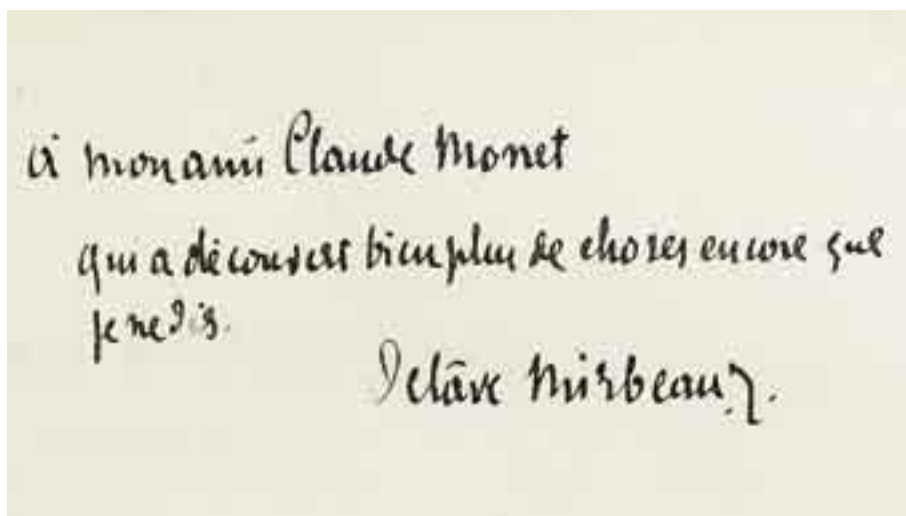 à mon ami Claude Monet
qui a découvert bien plus de choses encore que
je ne dis.
Octave Mirbeau.